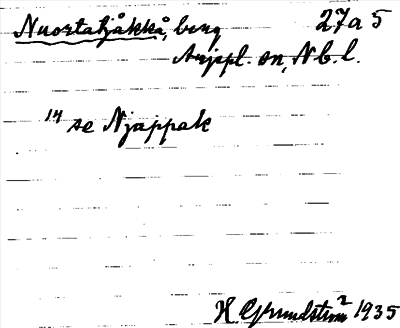 Nuortatjåkkå, berg 27a5
Arjepl. sn, Nb. l.
14 se Njappak
H. Grundström 1935